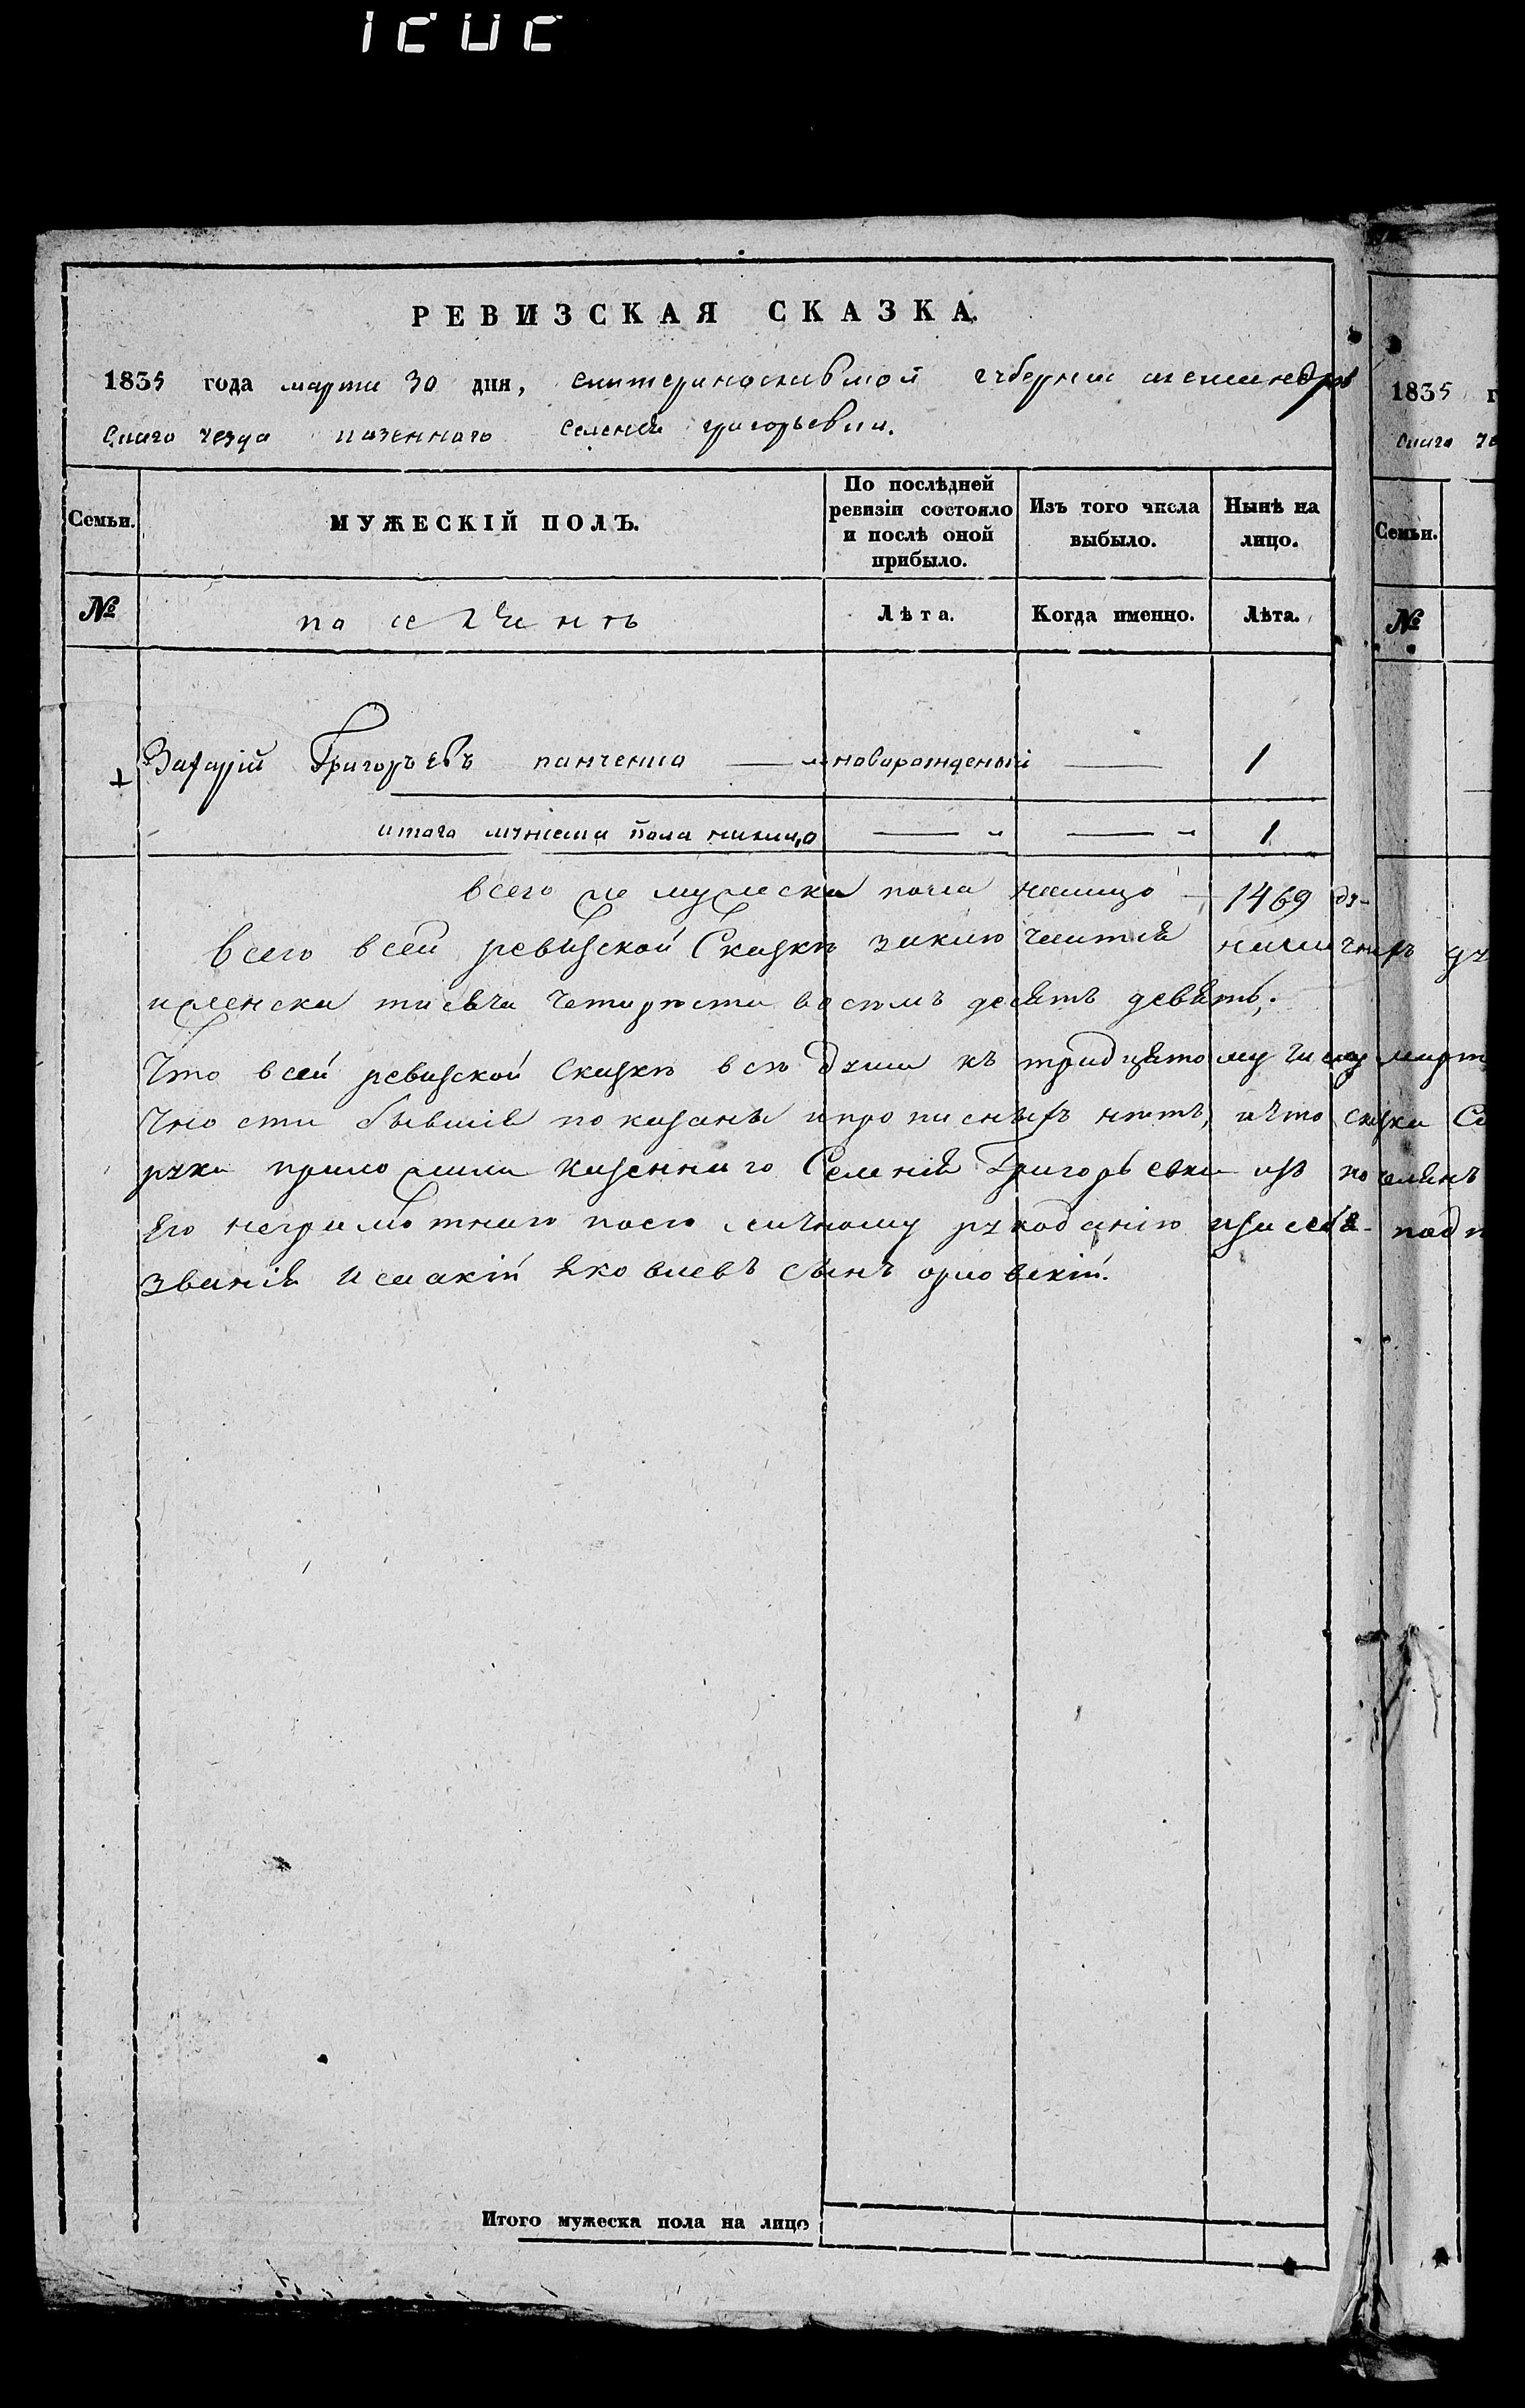 РЕВИЗСКАЯ СКАЗКА.
1835 года марта 30 дня, екатеринославской губернии александров
скаго уезда казеннаго селения григорьевки.
Семьи.
МУЖЕСКІЙ ПОЛЪ.
По послѣдней ревизіи состояло и послѣ оной прибыло.
Изъ того числа выбыло.
Нынѣ на лицо.
№
поселянѣ
Лѣта.
Когда именно.
Лѣта.
Захарій Григорьевъ панченко — новорожденый — 1
итого мужеска пола налицо — — 1
всего же мужеска пола налицо — 1469 ду-
Всего всей ревизской Сказкѣ заключается наличныхъ ду
мужеска тисяча четыреста девять;
Что всей ревизской Сказкѣ всѣ души къ тридцятому числу март
чности бывшіе показаны ипрописныхъ нѣтъ, ичто сказки
руки приложили казеннаго Селенія Григорьевки изъ поселянъ
его неграмотнаго поего личному рукоданію изасебя под
званія Исаакій Яковлевъ сынъ орловскій.
Итого мужеска пола на лицо
1835 г
скаго уе
Семьи.
№